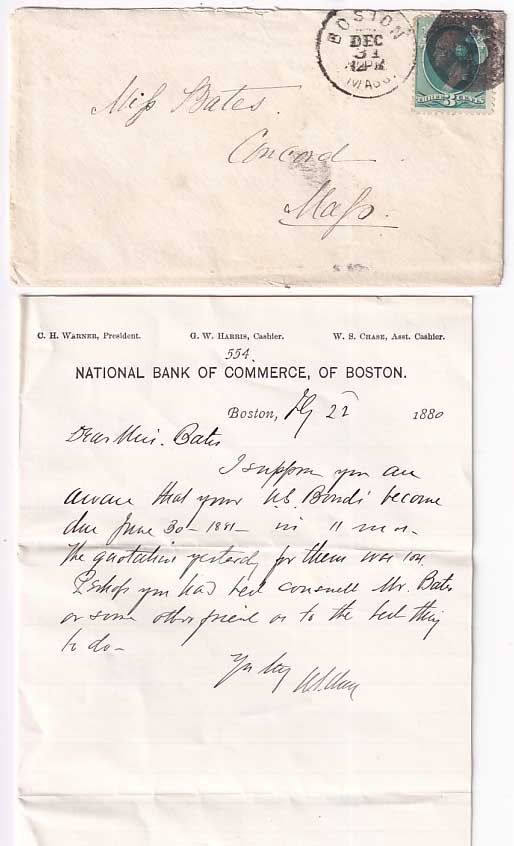 BOSTON
DEC
31
12 PM
MASS.
THREE 3 CENTS
Miss Bates.
Concord
Mass.
C. H. WARNER, President. G. W. HARRIS, Cashier. W. S. CHASE, Asst. Cashier.
554.
NATIONAL BANK OF COMMERCE, OF BOSTON.
Boston, 22 1880
Dear Miss. Bates
I suppose you are
aware that your U.S. Bonds become
due June 30 - 1881 - in 11 mos.
The quotation yesterday for them was 104
Perhaps you had best consult Mr. Bates
or some other friend as to the best thing
to do -
Yrs truly